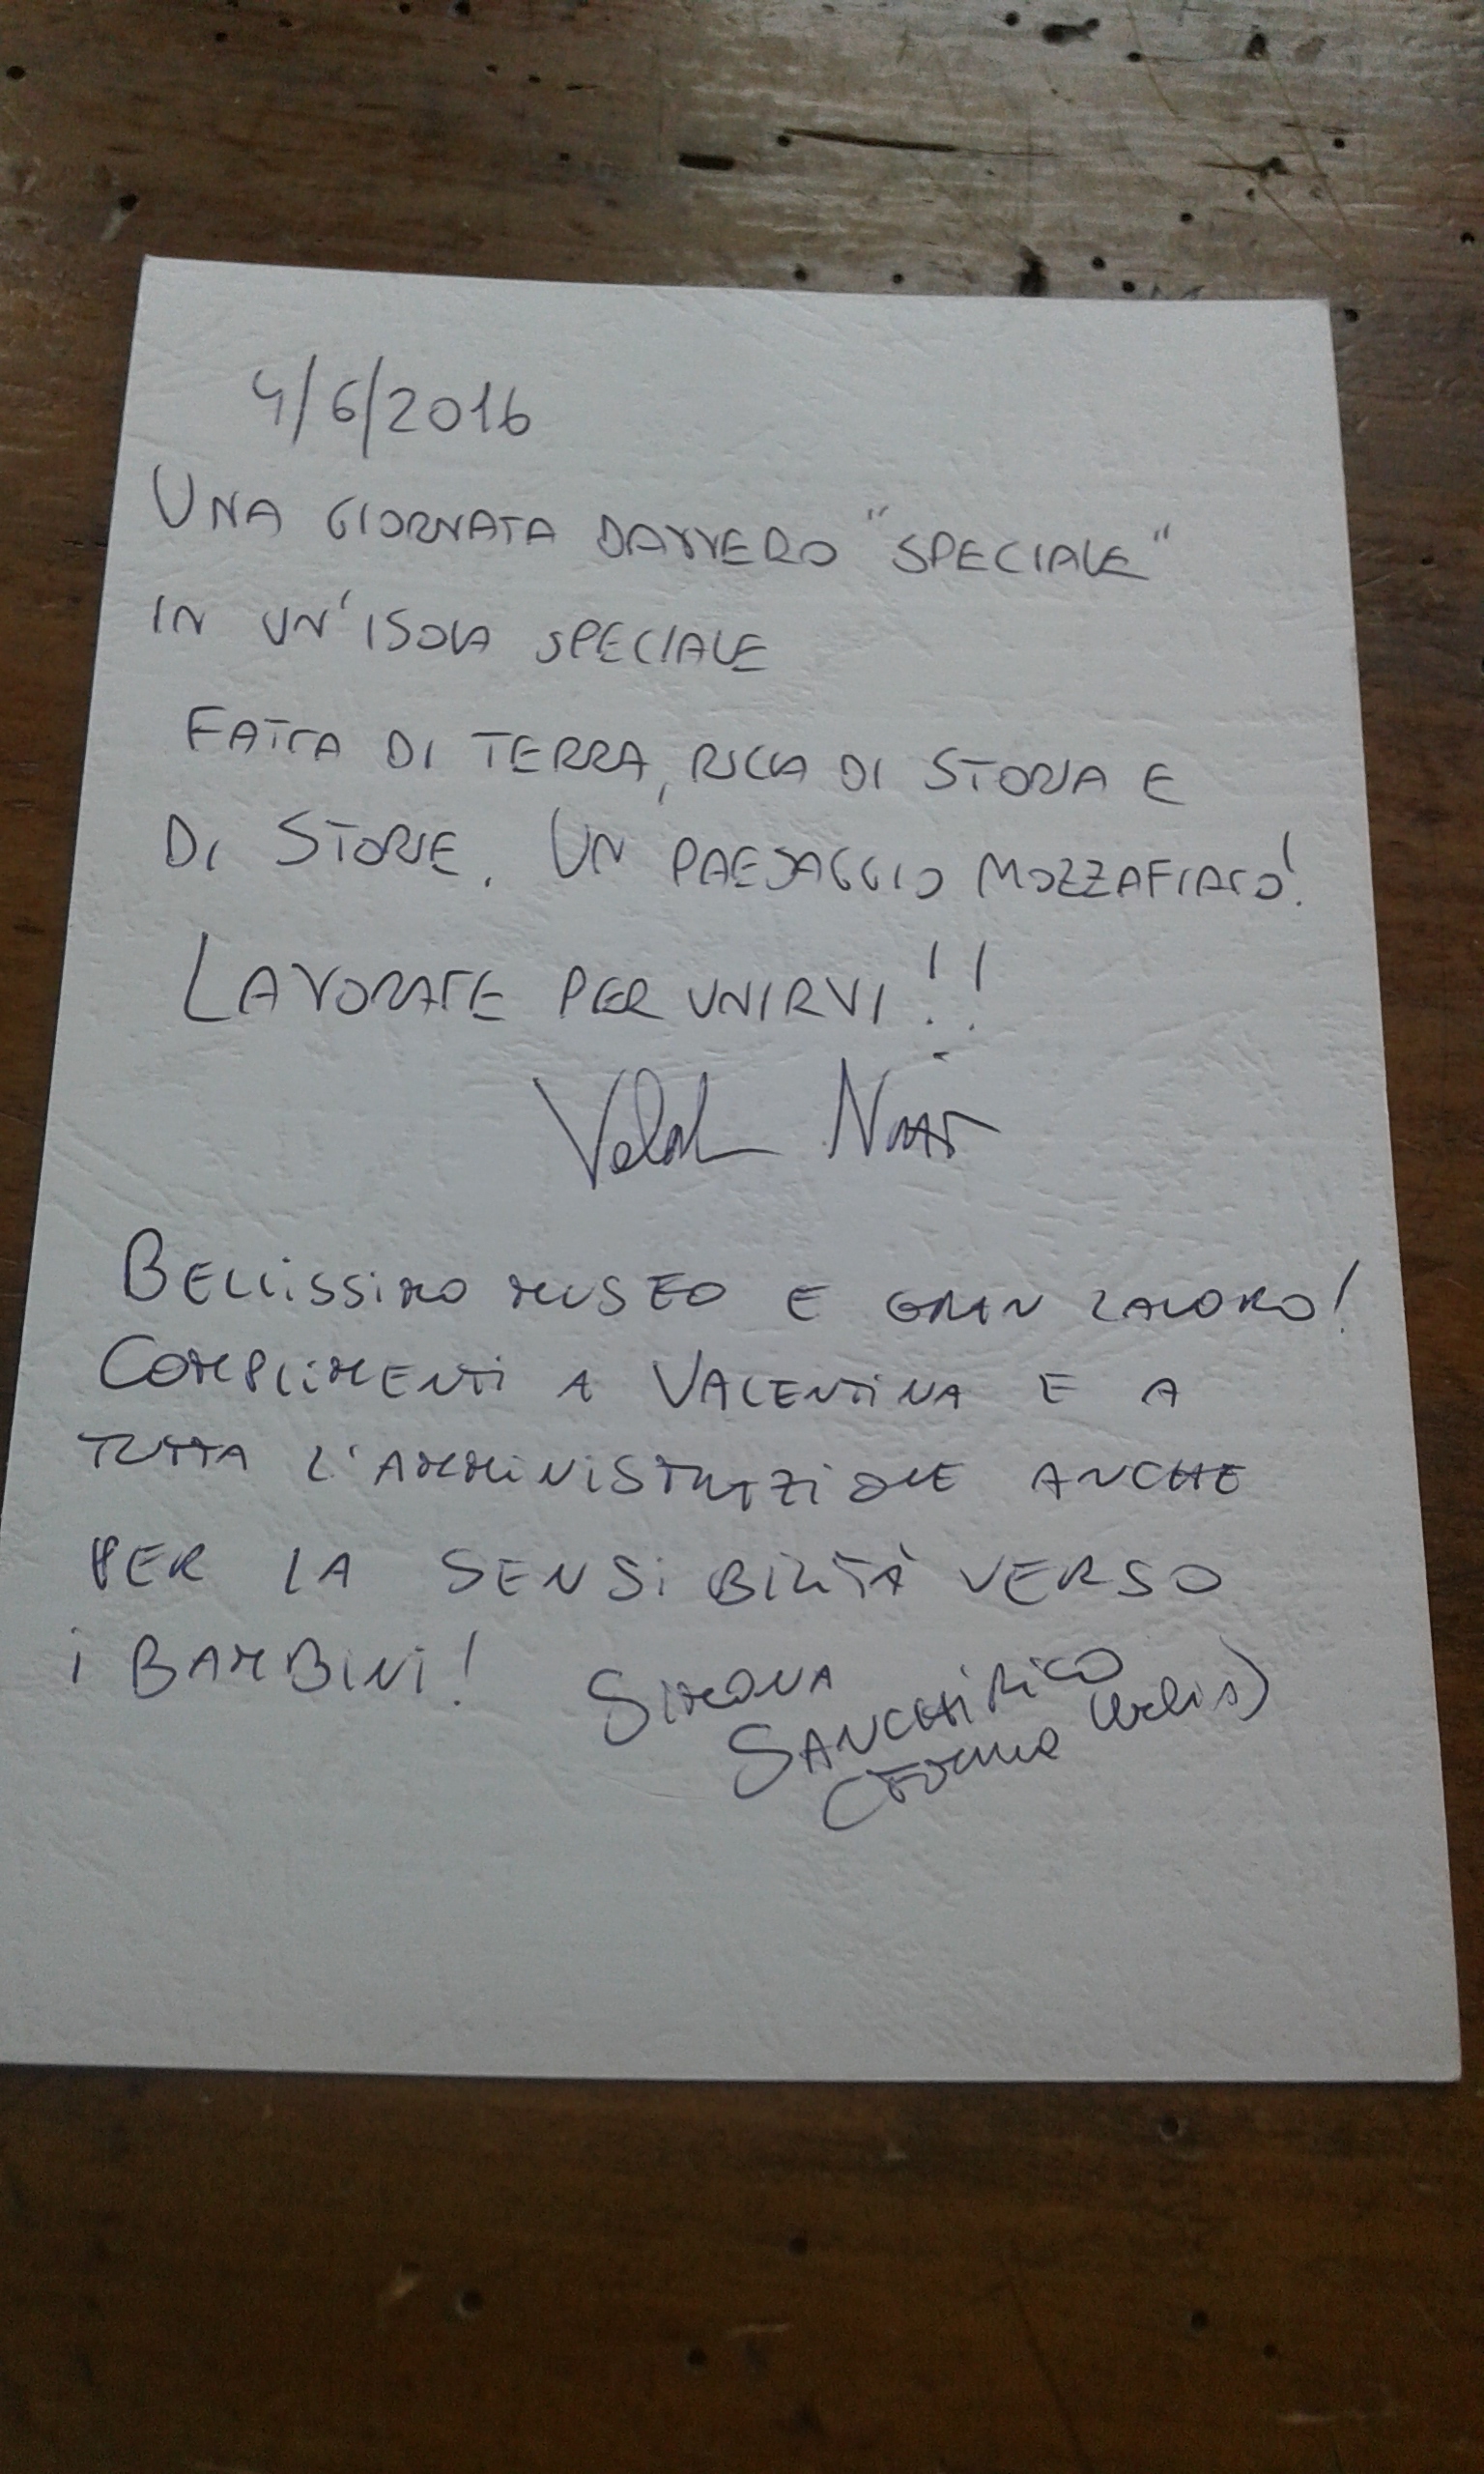 4/6/2016
UNA GIORNATA DAVVERO "SPECIALE"
IN UN'ISOLA SPECIALE
FATTA DI TERRA, RICCA DI STORIA E
DI STORIE. UN PAESAGGIO MOZZAFIATO!
LAVORATE PER UNIRVI!!
BELLISSIMO MUSEO E GRAN LAVORO!
COMPLIMENTI A VALENTINA E A
TUTTA L'AMMINISTRAZIONE ANCHE
PER LA SENSIBILITÀ VERSO
I BAMBINI!
SIMONA
SANCHIRICO